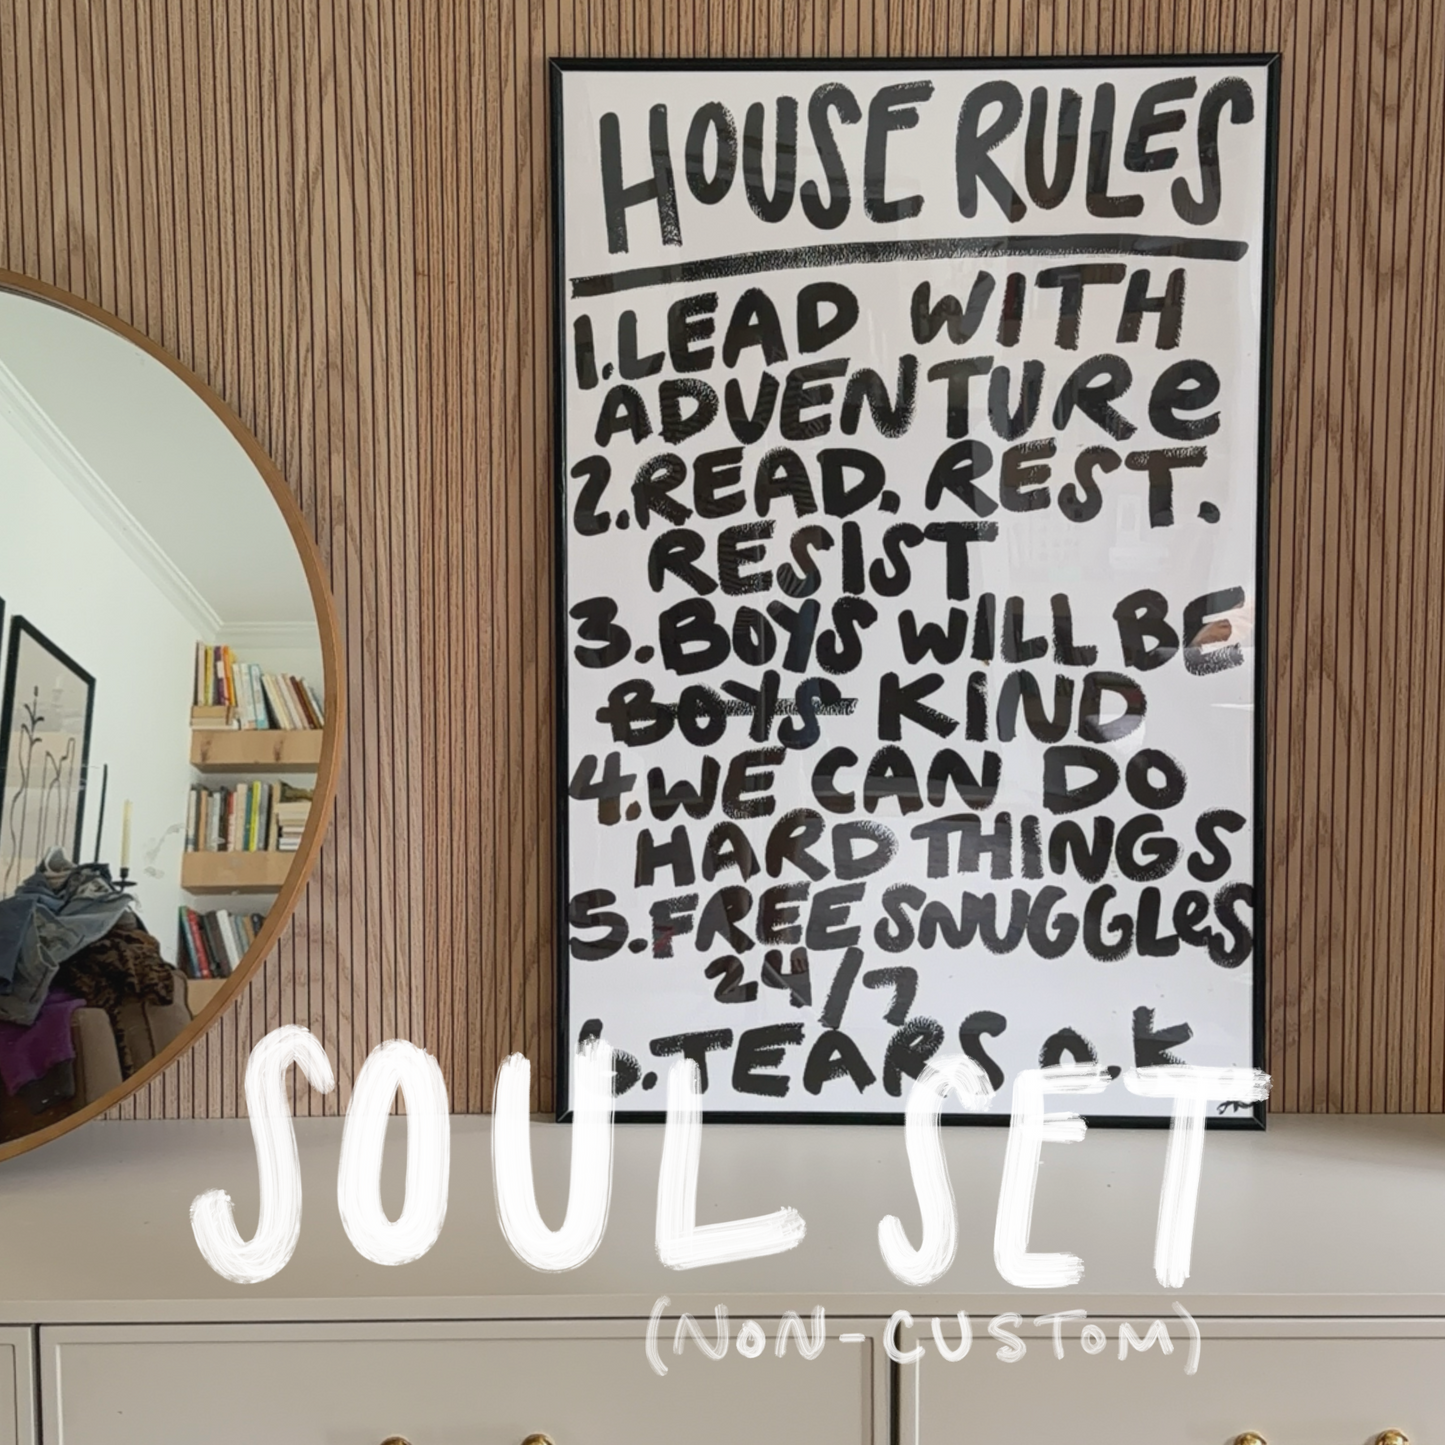 HOUSE RULES
1. LEAD WITH
ADVENTURe
2. READ. REST.
RESIST
3. BOYS WILL BE
BOYS KIND
4. WE CAN DO
HARD THINGS
5. FREE SNUGGLeS
24/7
6. TEARS O.K
SOUL SET
(NON-CUSTOM)